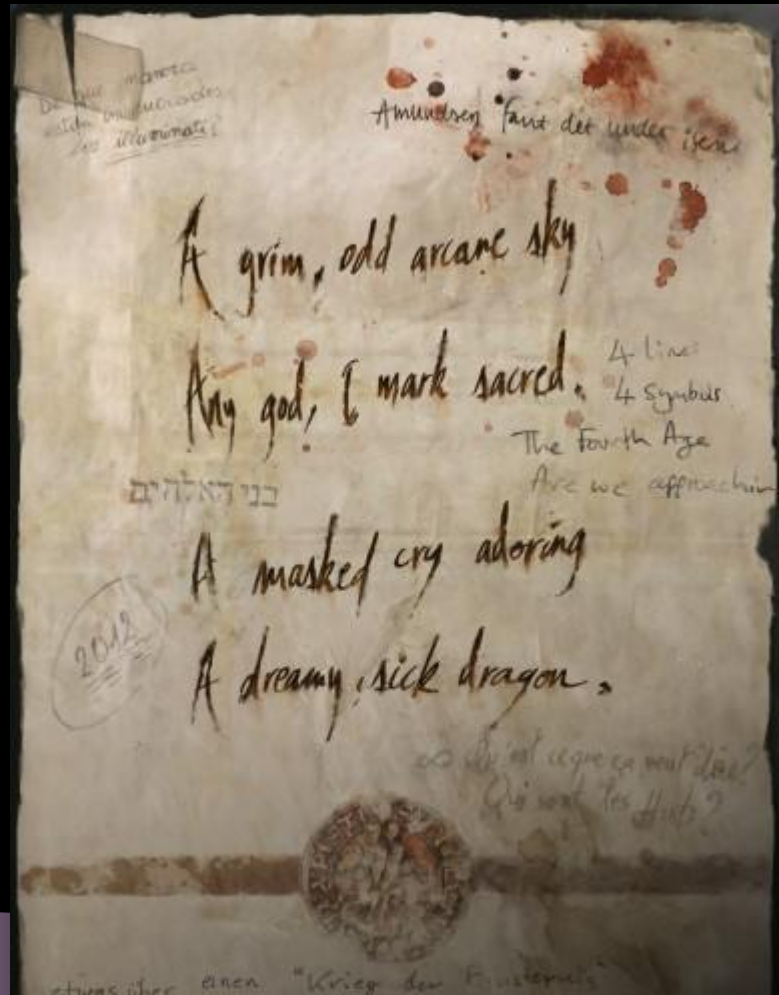 De que manera
están involucrados
los illuminati?
Amundsen fant det under isen.
A grim, odd arcane sky
Any god, I mark sacred.
4 Lines
4 Symbols
The Fourth Age
Are we approachin
בני האלהים
A masked cry adoring
2012
A dreamy, sick dragon.
Qu'est ce que ça veut dire?
Qui sont les
etwas über einen "Krieg der Finsternis"